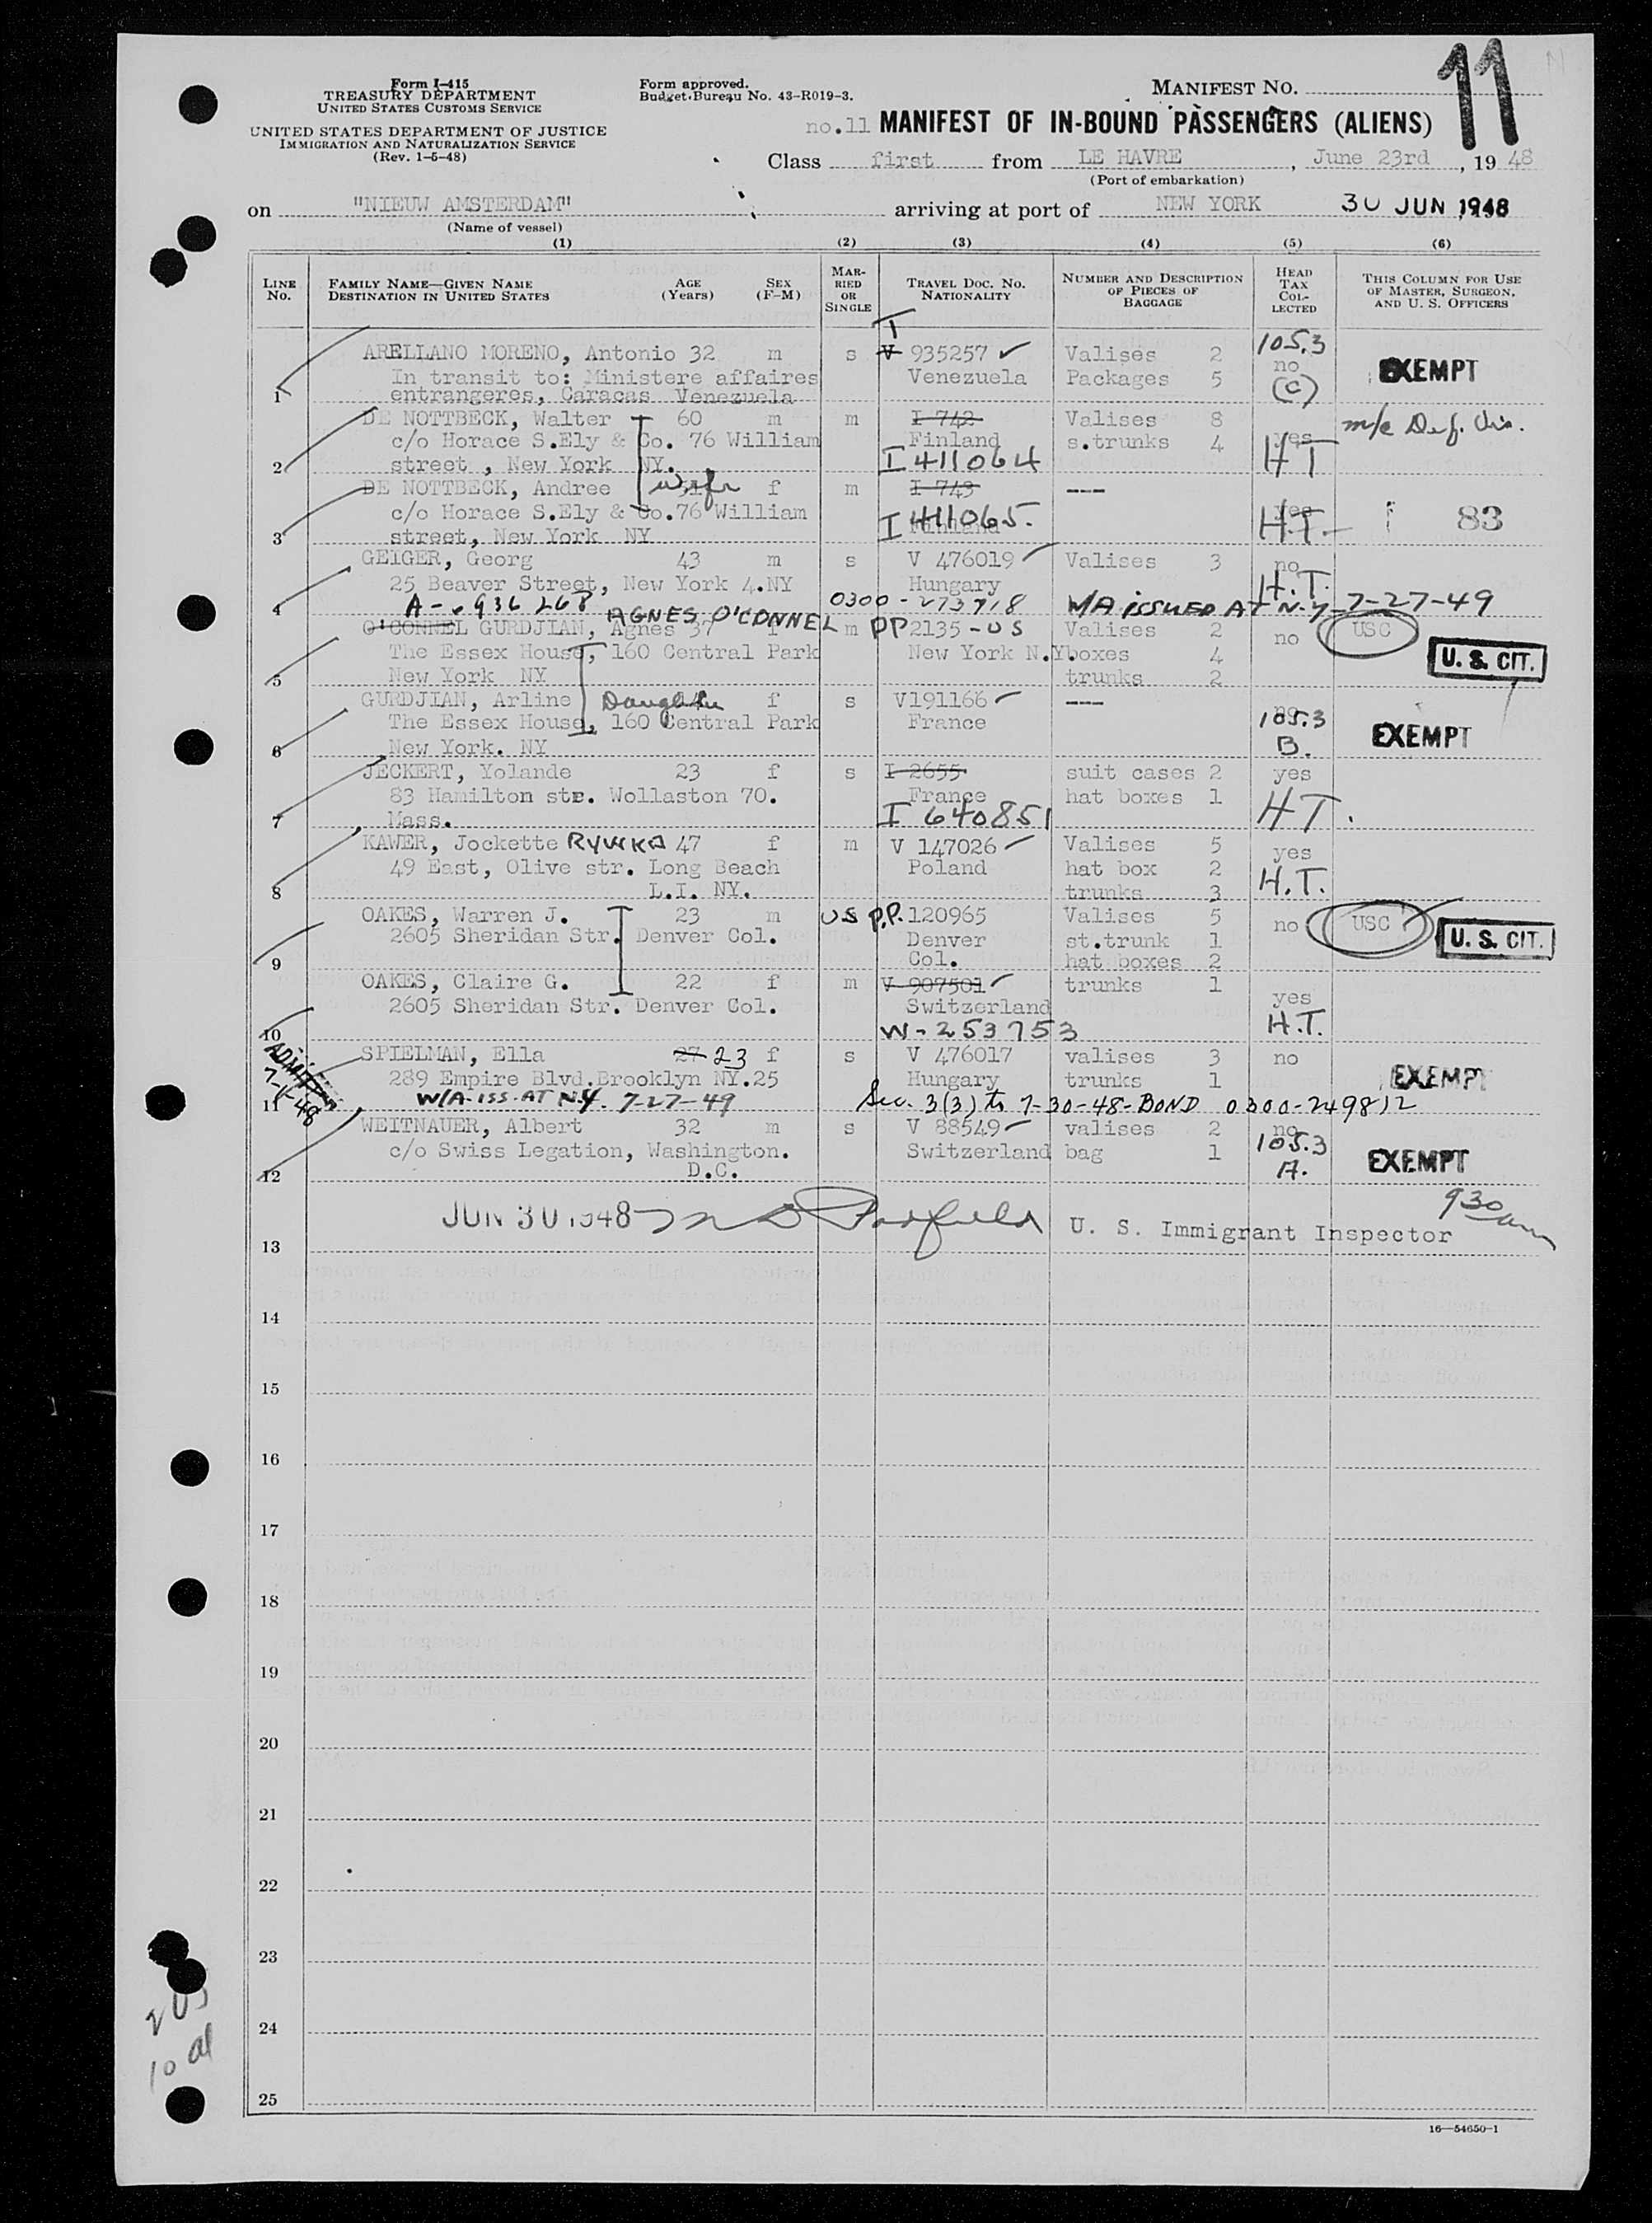 Form I-415
TREASURY DEPARTMENT
UNITED STATES CUSTOMS SERVICE
UNITED STATES DEPARTMENT OF JUSTICE
IMMIGRATION AND NATURALIZATION SERVICE
(Rev. 1-5-48)
Form approved.
Budget Bureau No. 43-R019-3.
MANIFEST NO. 11
no.11 MANIFEST OF IN-BOUND PASSENGERS (ALIENS)
Class first from LE HAVRE, June 23rd, 1948
(Port of embarkation)
on "NIEUW AMSTERDAM" arriving at port of NEW YORK 30 JUN 1948
(Name of vessel)
(1) (2) (3) (4) (5) (6)
LINE NO. FAMILY NAME—GIVEN NAME DESTINATION IN UNITED STATES AGE (Years) SEX (F-M) MARRIED OR SINGLE TRAVEL DOC. NO. NATIONALITY NUMBER AND DESCRIPTION OF PIECES OF BAGGAGE HEAD TAX COLLECTED THIS COLUMN FOR USE OF MASTER, SURGEON, AND U. S. OFFICERS
T
ARELLANO MORENO, Antonio 32 m s V 935257 Valises 2 105.3
In transit to: Ministere affaires Venezuela Packages 5 no EXEMPT
1 entrangeres, Caracas Venezuela (C)
DE NOTTBECK, Walter 60 m m I 742 Valises 8
c/o Horace S.Ely & Co. 76 William Finland s.trunks 4 yes
2 street , New York NY. I 411064 HT
DE NOTTBECK, Andree wife f m I 743 ---
c/o Horace S.Ely & Co.76 William I 411065. yes 83
3 street, New York NY H.T.
GEIGER, Georg 43 m s V 476019 Valises 3 no
25 Beaver Street, New York 4.NY Hungary H.T.
4 0300- W/A ISSUED AT N.Y. 7-27-49
O'CONNEL GURDJIAN, Agnes 37 f AGNES O'CONNEL m PP 2135-US Valises 2 no USC
The Essex House, 160 Central Park New York N.Y. boxes 4 U. S. CIT.
5 New York NY trunks 2
GURDJIAN, Arline Daughter f s V191166 --- no
The Essex House, 160 Central Park France 105.3 EXEMPT
6 New York. NY B.
JECKERT, Yolande 23 f s I 2655 suit cases 2 yes
83 Hamilton str. Wollaston 70. France hat boxes 1
7 Mass. I 640851 HT.
KAWER, Jockette RYWKA 47 f m V 147026 Valises 5 yes
49 East, Olive str. Long Beach Poland hat box 2 H.T.
8 L.I. NY. trunks 3
OAKES, Warren J. 23 m US P.P. 120965 Valises 5 no USC
2605 Sheridan Str. Denver Col. Denver st.trunk 1 U. S. CIT.
9 Col. hat boxes 2
OAKES, Claire G. 22 f m V 907501 trunks 1 yes
2605 Sheridan Str. Denver Col. Switzerland
10 W-253753 H.T.
SPIELMAN, Ella 27 23 f s V 476017 valises 3 no
289 Empire Blvd.Brooklyn NY.25 Hungary trunks 1 EXEMPT
ADMITTED 7-1-48
11 W/A-ISS. AT N.Y. 7-27-49 Sec. 3(3) to 7-30-48-BOND 0300-249812
WEITNAUER, Albert 32 m s V 88549 valises 2 no
c/o Swiss Legation, Washington. Switzerland bag 1 105.3 EXEMPT
12 D.C. A.
JUN 30 1948 U. S. Immigrant Inspector 930 am
13
14
15
16
17
18
19
20
21
22
23
24
25
16—54650-1